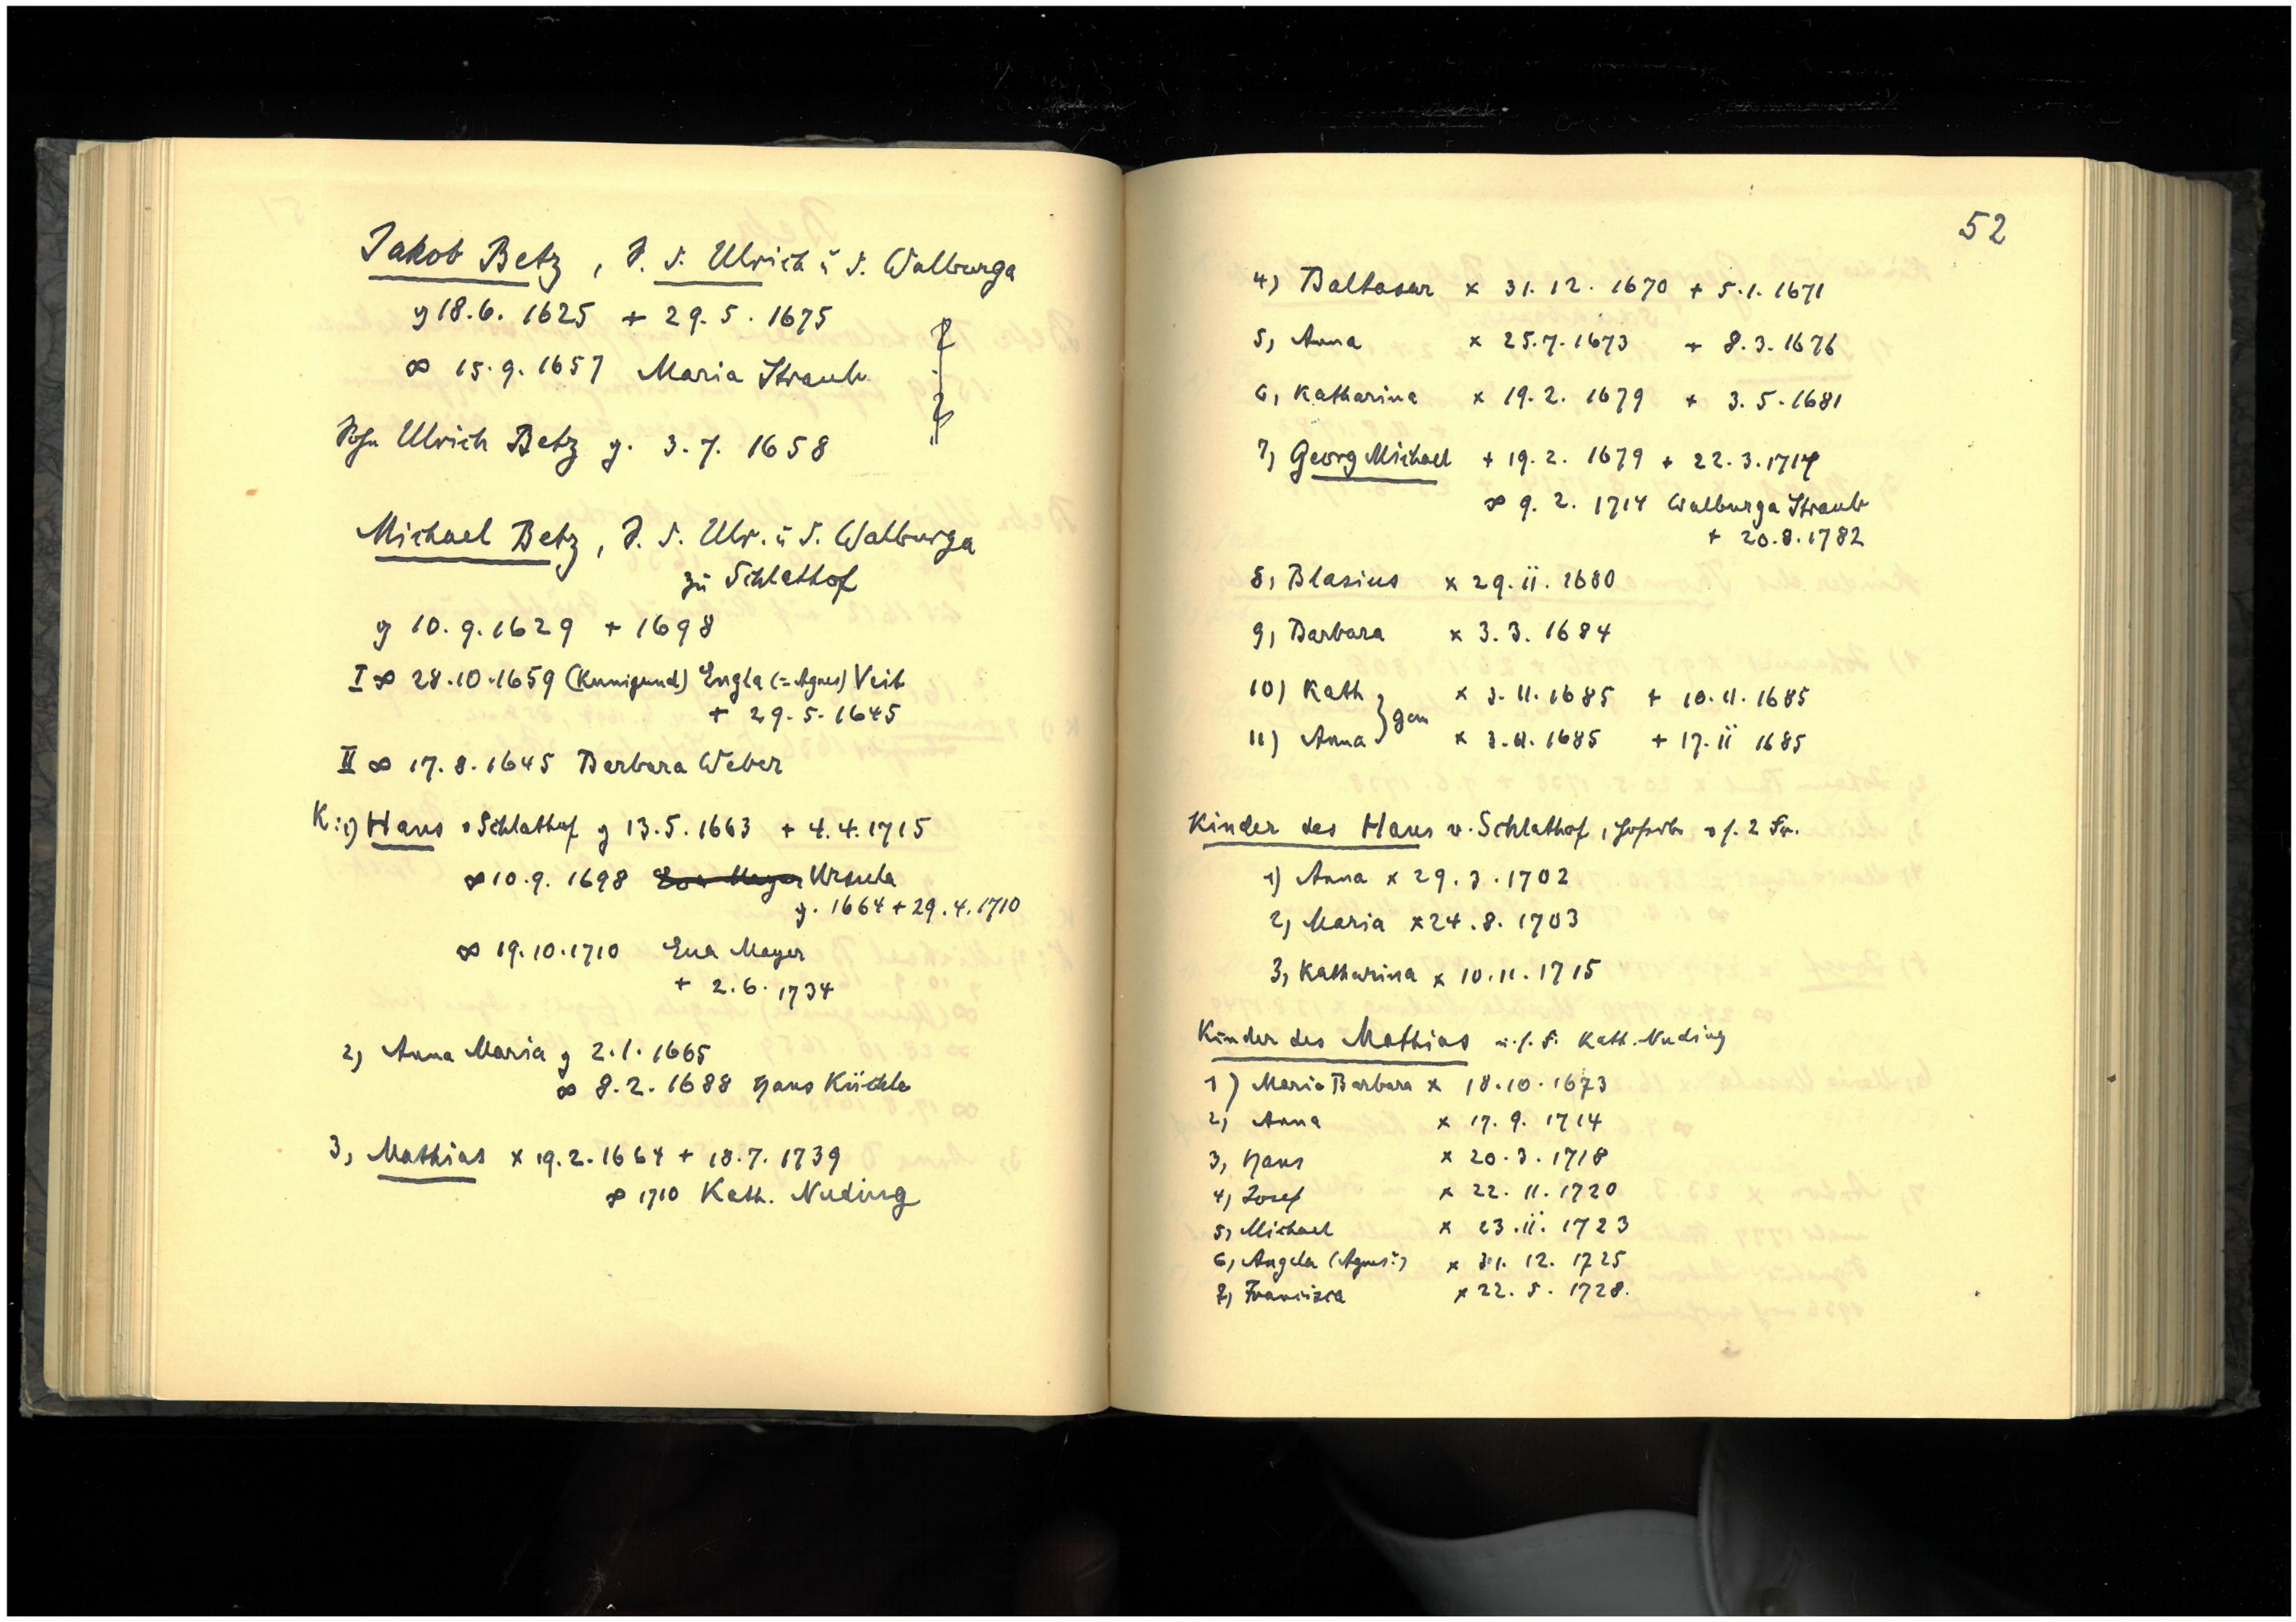 Jakob Betz, S. d. Ulrich u d. Walburga
g 18.6. 1625 + 29. 5. 1675
∞ 15.9. 1657 Maria Straub
Sohn Ulrich Betz g. 3. 7. 1658
Michael Betz, S. d. Ulr. u d. Walburga
zu Schlathof
g 10. 9. 1629 + 1698
I ∞ 28.10.1659 (Kunigund) Engla (= Agnes) Veit
+ 29. 5. 1645
II ∞ 17. 8. 1645 Barbara Weber
K: 1) Hans v Schlathof g 13.5.1663 + 4.4.1715
∞ 10.9. 1698 Eva Mayer Ursula
g. 1664 + 29.4.1710
∞ 19.10.1710 Eva Mayer
+ 2.6. 1734
2) Anna Maria g 2.1.1665
∞ 8.2. 1688 Hans Küchle
3, Mathias x 19.2.1664 + 18.7. 1739
∞ 1710 Kath. Nuding
52
4) Baltasar x 31. 12. 1670 + 5.1. 1671
5, Anna x 25.7.1673 + 8.3.1676
6, Katharina x 19. 2. 1679 + 3. 5. 1681
7, Georg Michael + 19. 2. 1679 + 22. 3. 1714
∞ 9. 2. 1714 Walburga Straub
+ 20.8.1782
8, Blasius x 29. ii. 1680
9, Barbara x 3. 3. 1684
10) Kath x 3. 11. 1685 + 10. 11. 1685
gem
11) Anna x 3. 11. 1685 + 17. ii 1685
Kinder des Hans v. Schlathof, s. 2 Fr.
1) Anna x 29. 3. 1702
2, Maria x 24. 8. 1703
3, Katharina x 10. 11. 1715
Kinder des Mathias u. s. F. Kath. Nuding
1) Maria Barbara x 18.10.1673
2, Anna x 17. 9. 1714
3, Hans x 20. 3. 1718
4, Josef x 22. 11. 1720
5, Michael x 23. ii. 1723
6, Angela (Agnes?) x 31. 12. 1725
7, Franziska x 22. 5. 1728.